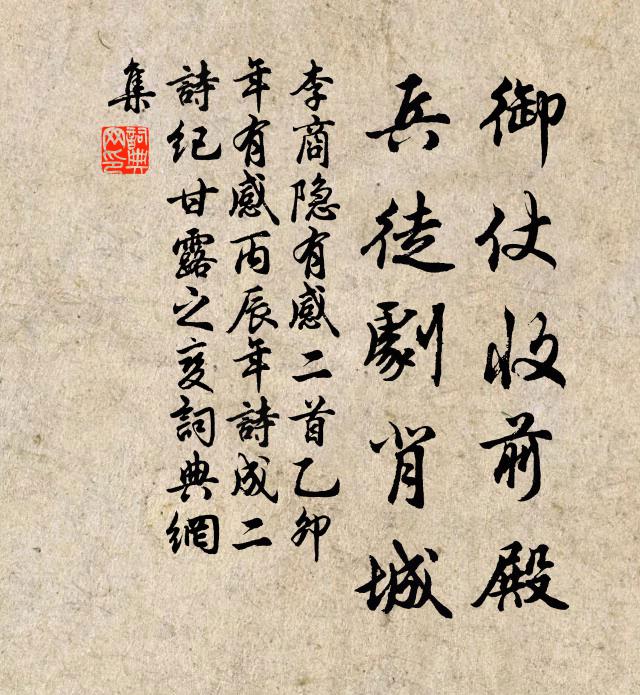 御仗收前殿
兵徒劇背城
李商隐有感二首乙卯
年有感丙辰年詩成二
詩紀甘露之变詞典網
集
詞典
网印